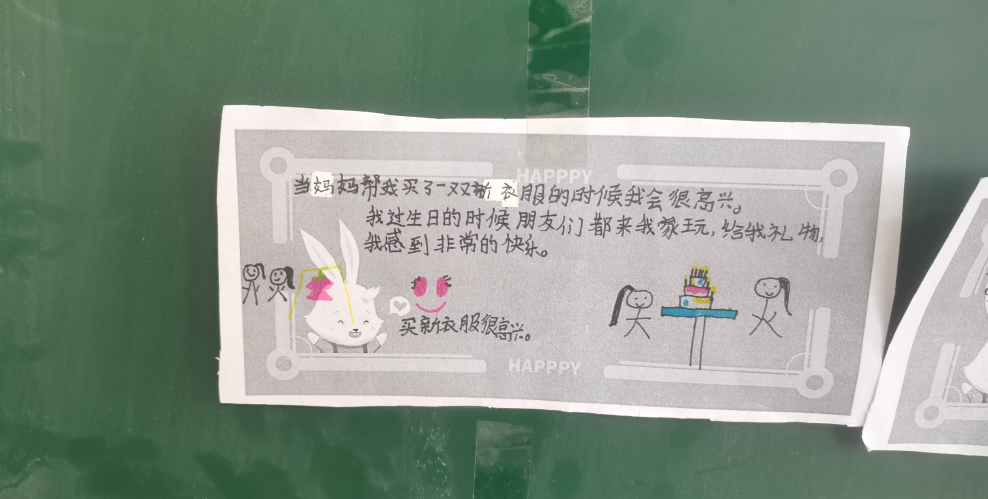 HAPPPY
当妈妈帮我买了一双新衣服的时候我会很高兴。
我过生日的时候朋友们都来我家玩，给我礼物，
我感到非常的快乐。
买新衣服很高兴。
HAPPPY